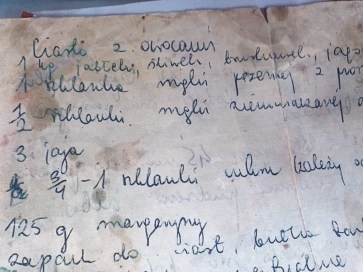 Ciasto z owocami
1 kg jabłek, śliwek, truskawek, jagó
1 szklanka mąki pszennej z pro
1/2 szklanki mąki ziemniaczanej
3 jaja
3/4 - 1 szklanki cukru (zależy o
125 g margaryny
zapach do ciast, bułka tar